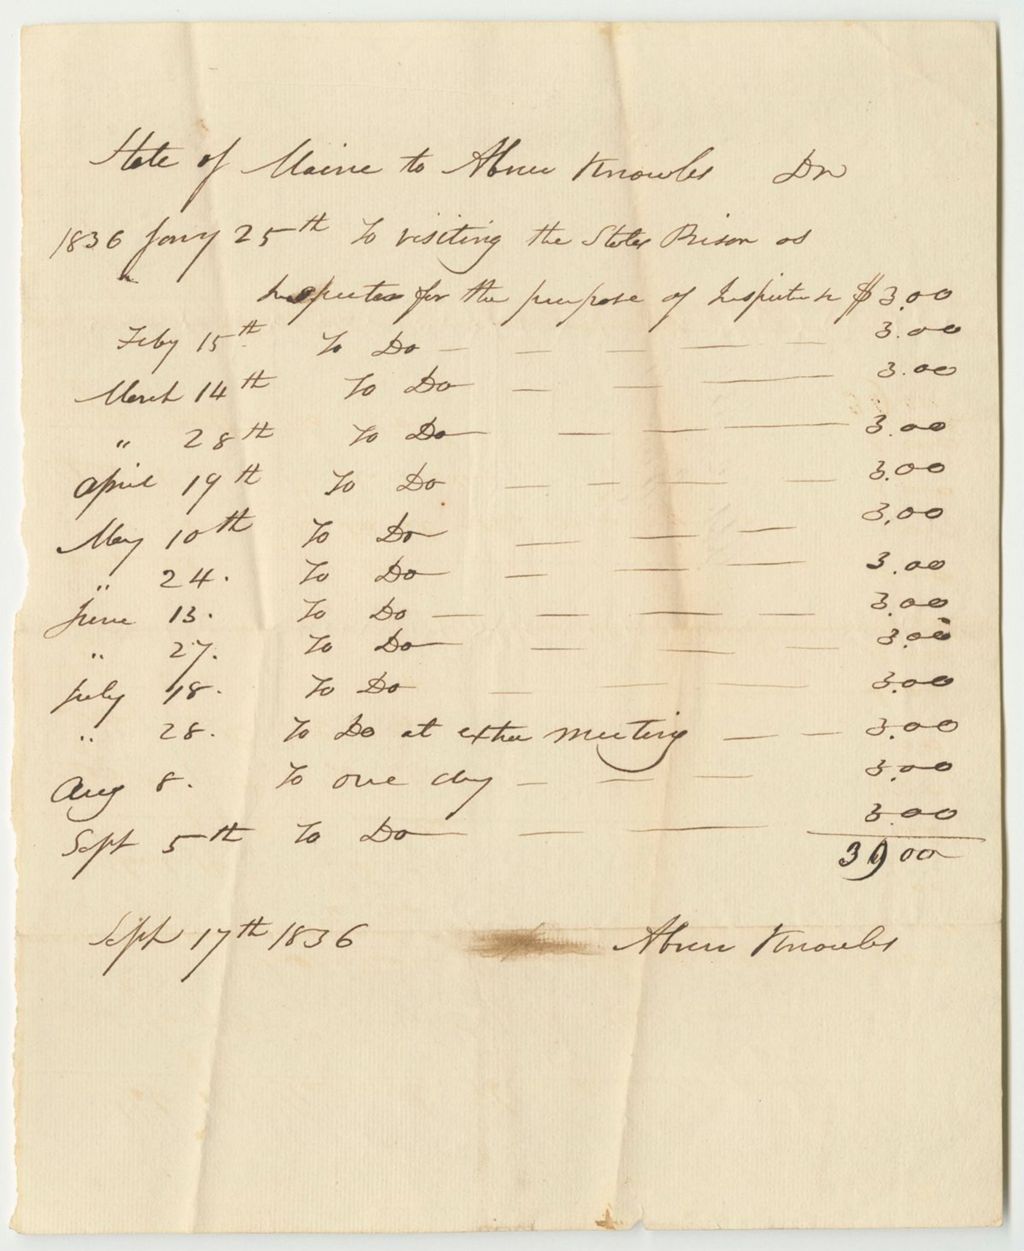 State of Maine to Abner Knowles Dr
1836 Jany 25th To visiting the States Prison as
" Inspector for the purpose of Inspectin $3.00
Feby 15th To Do — — — — — 3.00
March 14th To Do — — — — 3.00
" 28th To Do — — — — 3.00
April 19th To Do — — — — 3.00
May 10th To Do — — — 3.00
" 24. To Do — — — — 3.00
June 13. To Do — — — — — 3.00
" 27. To Do — — — — 3.00
July 18. To Do — — — — 3.00
" 28. To Do at extra meeting — — — 3.00
Aug 8. To one day — — — 3.00
Sept 5th To Do — — — 3.00
39 00
Sept 17th 1836 Abner Knowles